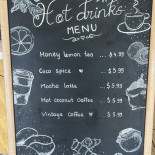 Hot drinks
MENU
Honey lemon tea ... $4.99
Coco Spice ♥ ... $5.99
Mocha latte ... $5.99
Hot coconut Coffee ... $5.99
Vintage coffee ♥ ... $3.99